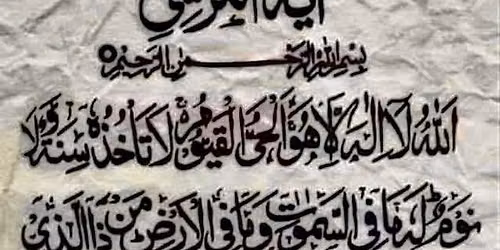 آية الكرسي
بسم الله الرحمن الرحيم
الله لا اله الا هو الحي القيوم لا تاخذه سنة ولا
نوم له ما في السموات وما في الارض من ذا الذي